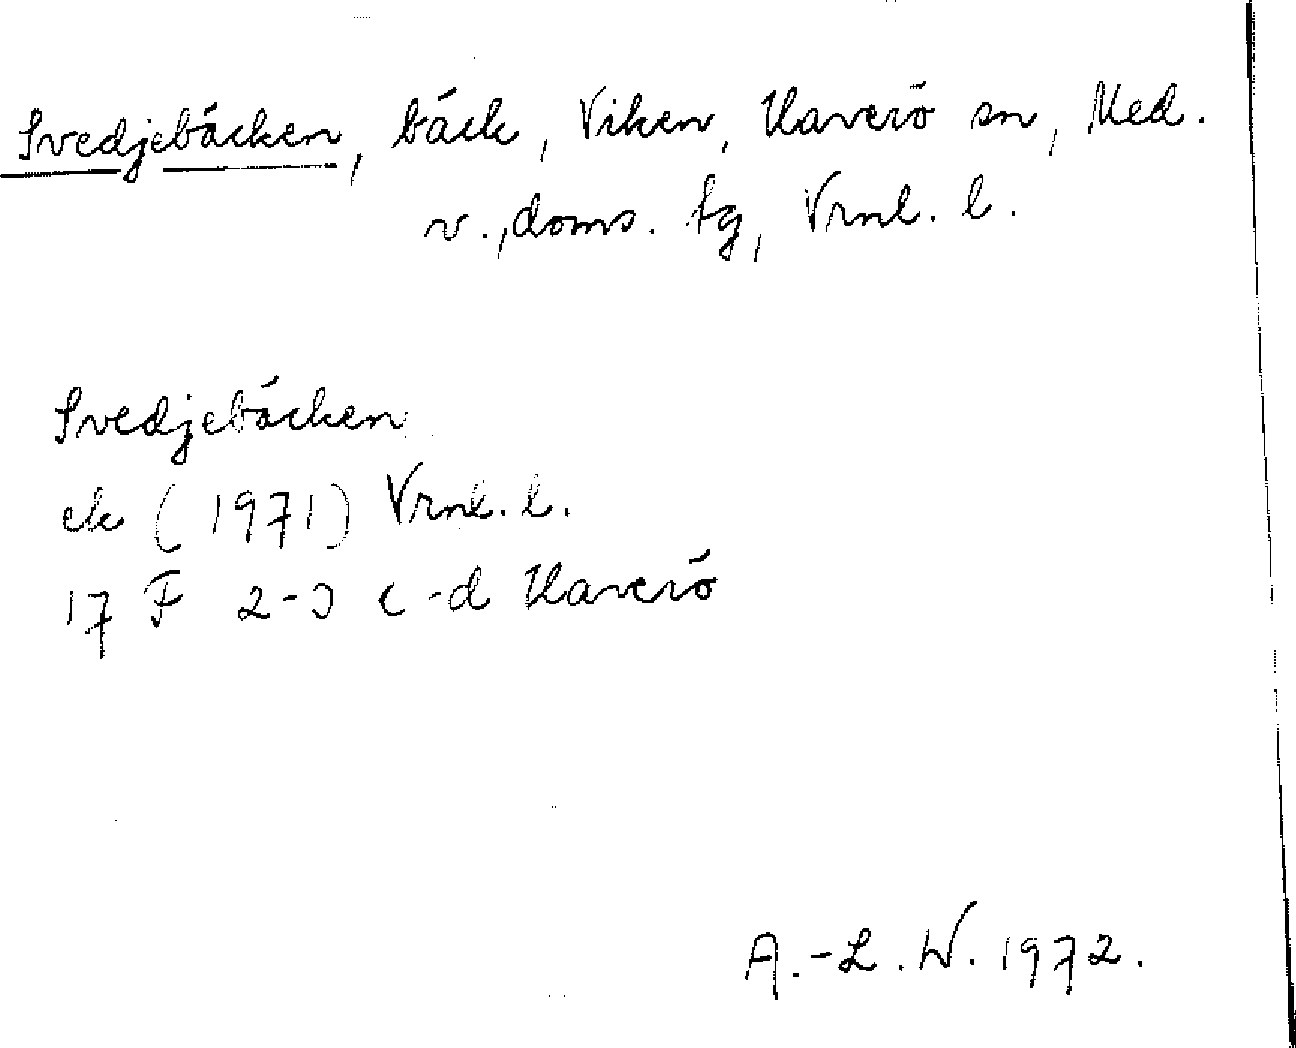 Svedjebäcken, bäck, Viken, Haverö sn, Med.
v., doms. tg, Vrnl. l.
Svedjebäcken
ek (1971) Vrnl. l.
17 F 2-3 c-d Haverö
A.-L. W. 1972.